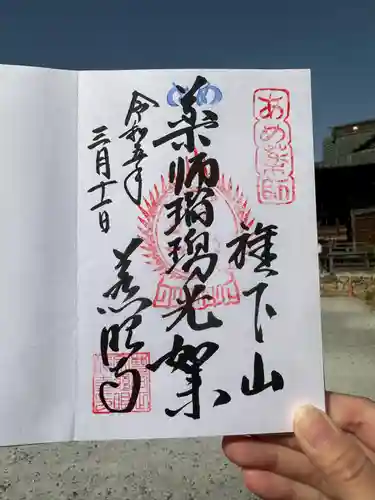 あめ薬師
旗下山
め
薬師瑠璃光如来
令和五年
三月十一日